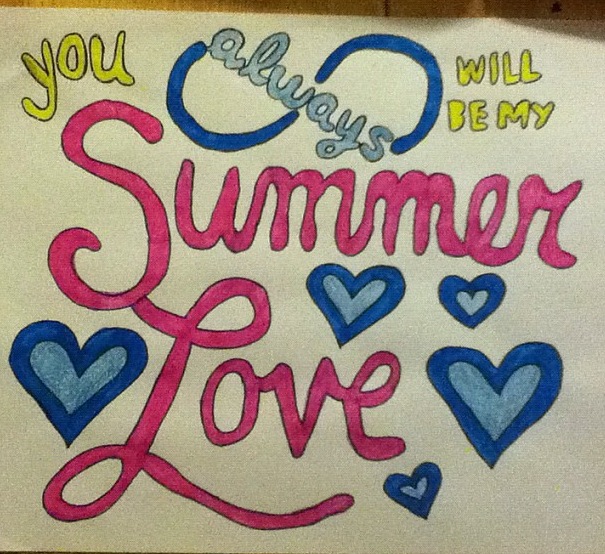 you always WILL
BE MY
Summer
Love